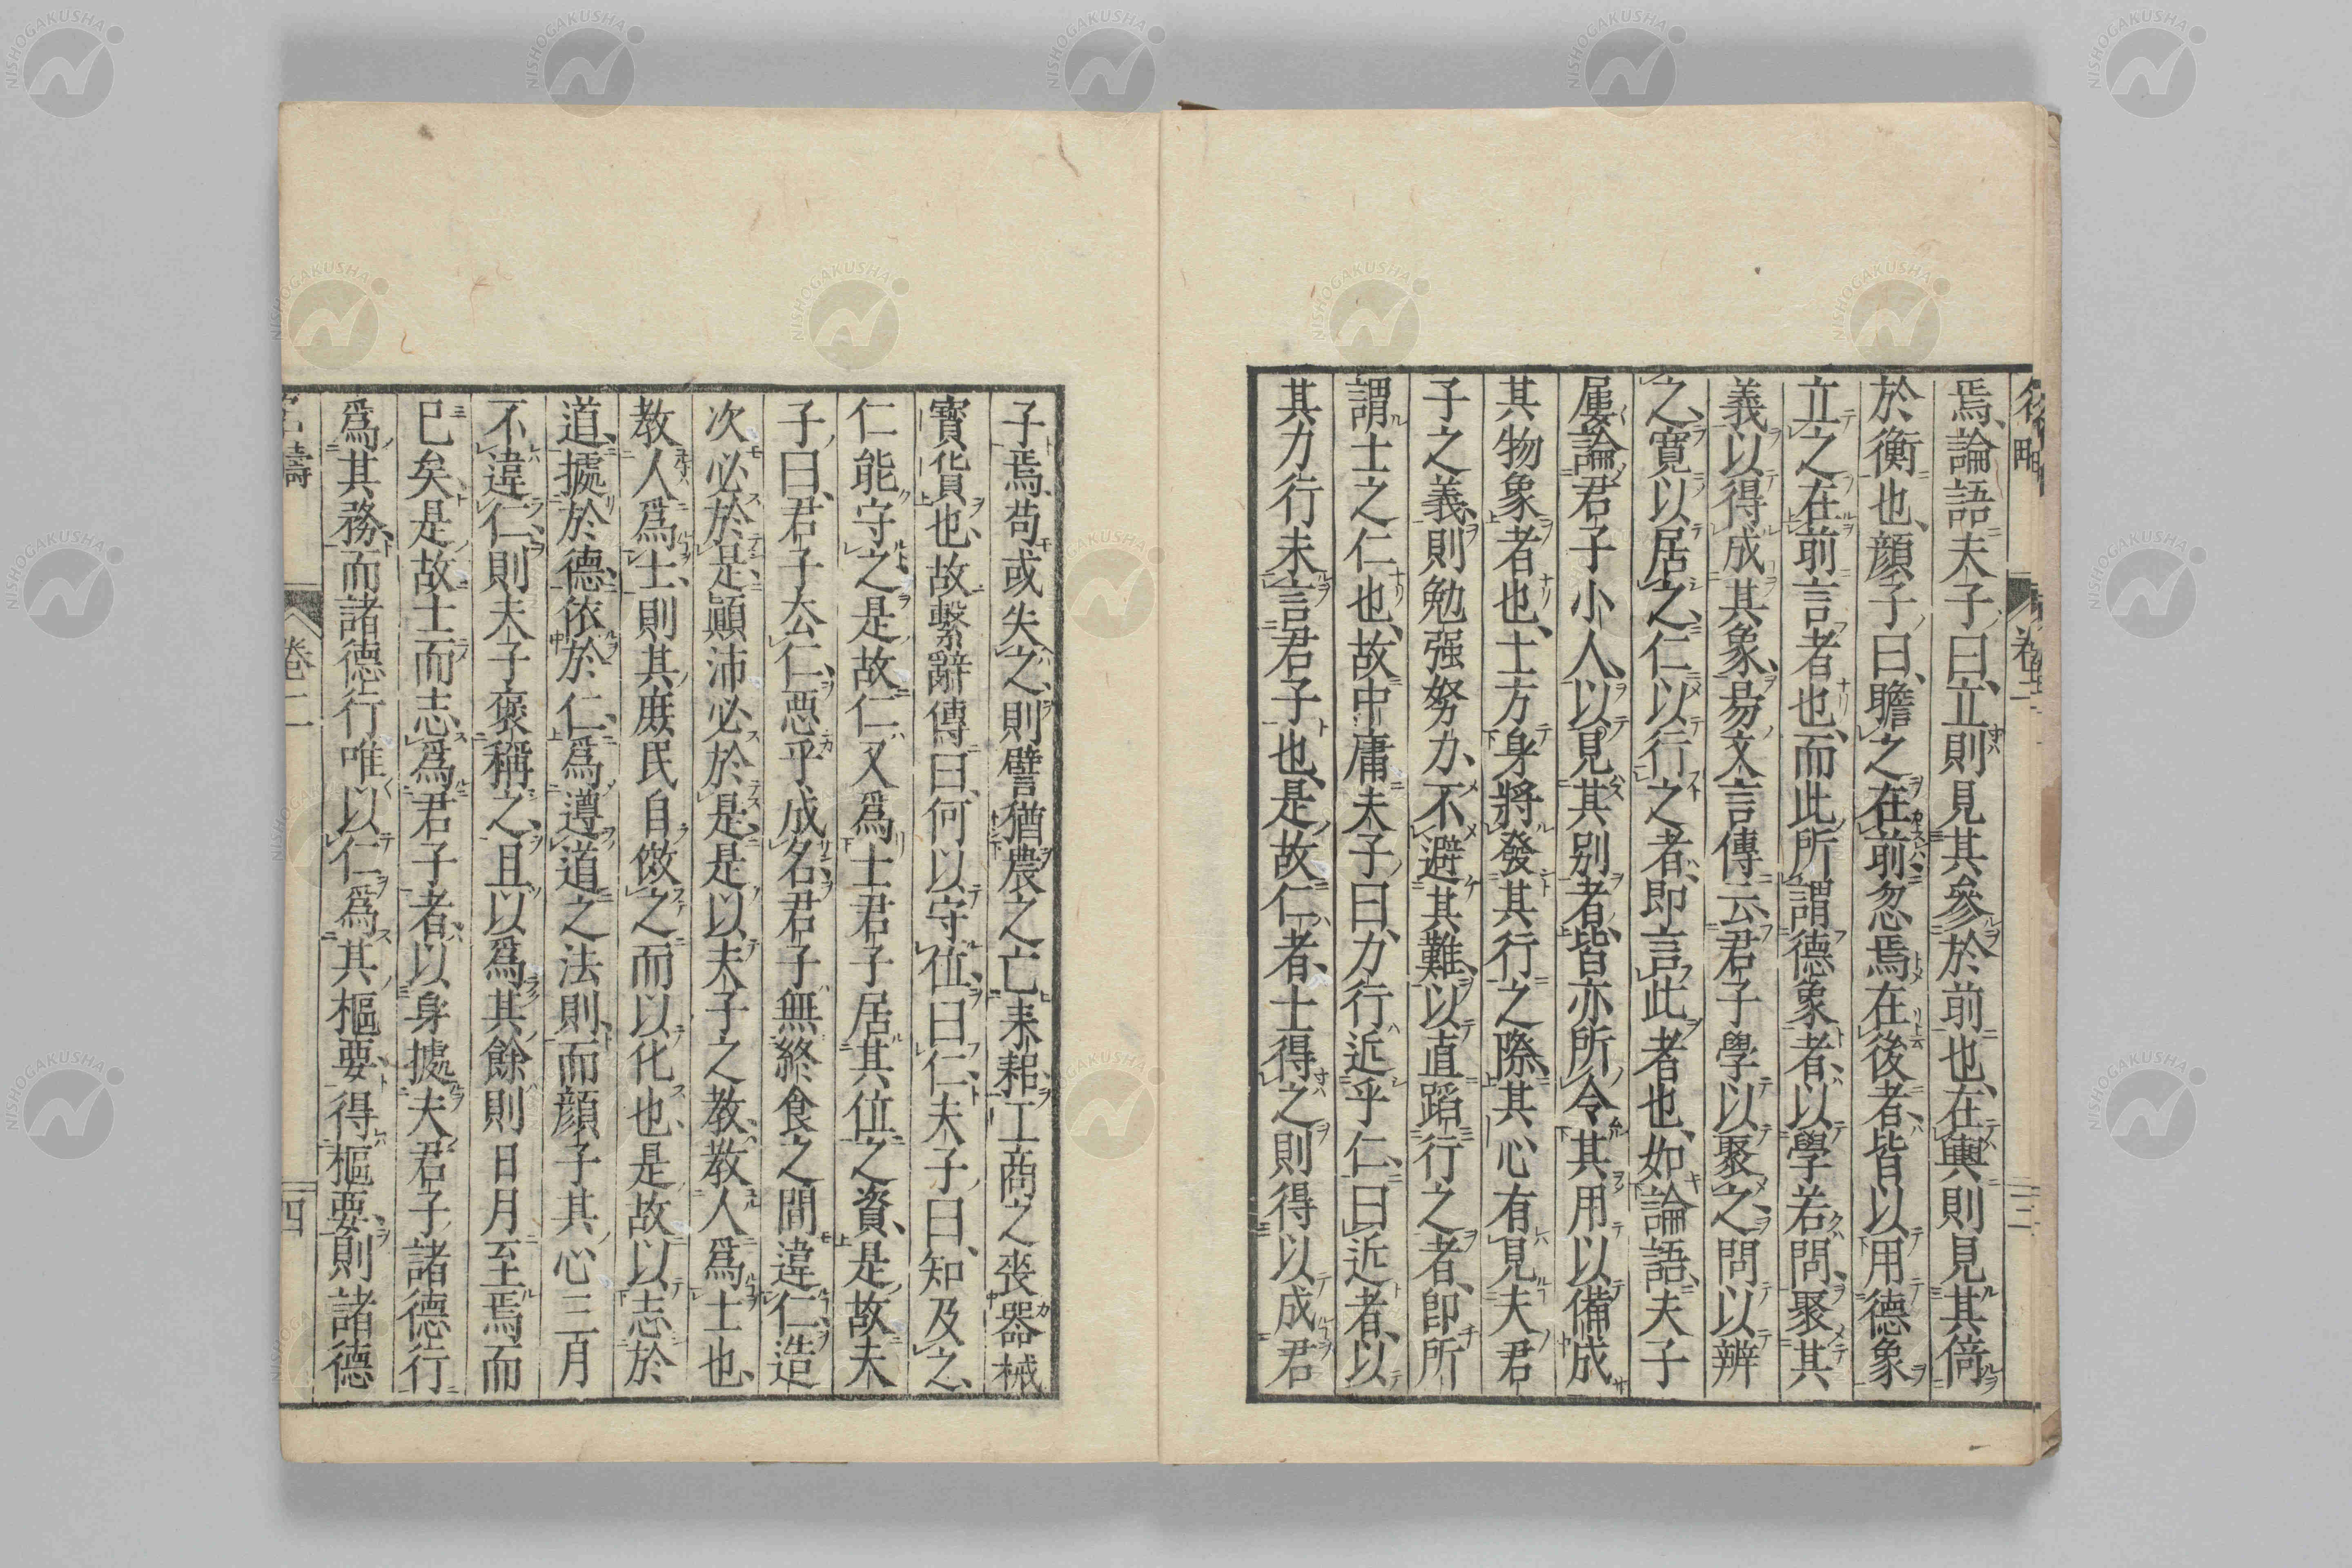 焉、論語夫子曰、立則見其參於前也、在輿則見其倚
於衡也、顏子曰、瞻之在前忽焉在後者、皆以用德象
立之在前言者也、而此所謂德象者、以學若問、聚其
義以得成其象、易文言傳云、君子學以聚之、問以辨
之、寬以居之、仁以行之者、即言此者也、如論語、夫子
屢論君子小人、以見其別者、皆亦所令其用以備成
其物象者也、士方身將發其行之際、其心有見夫君
子之義、則勉强努力、不避其難、以直蹈行之者、卽所
謂士之仁也、故中庸夫子曰、力行近乎仁、曰近者、以
其力行未言君子也、是故仁者、士得之則得以成君
子焉、苟或失之、則譬猶農之亡耒耜、工商之喪器械
寶貨也、故繫辭傳曰、何以守位、曰仁、夫子曰、知及之、
仁能守之、是故仁又爲士君子居其位之資、是故夫
子曰、君子去仁、惡乎成名、君子無終食之間違仁、造
次必於是、顚沛必於是、是以夫子之教、教人爲士也、
教人爲士、則其庶民自傚之、而以化也、是故以志於
道、據於德、依於仁、爲遵道之法則、而顏子其心三月
不違仁、則夫子褒稱之、且以爲其餘則日月至焉而
已矣、是故士而志爲君子者、以身據夫君子諸德行
爲其務、而諸德行唯以仁爲其樞要、得樞要、則諸德
卷二
四
NISHOGAKUSHA